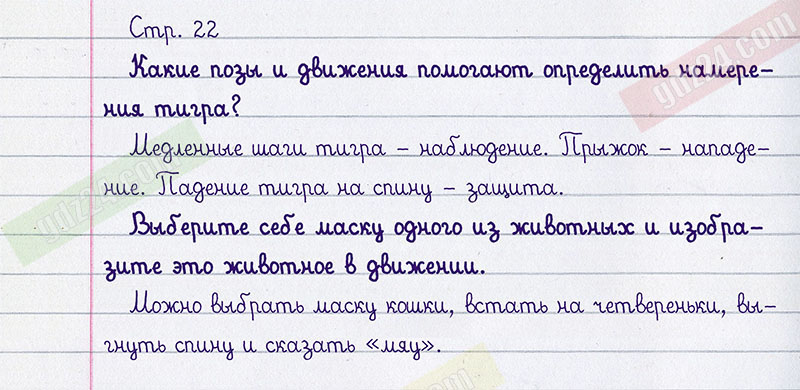 Стр. 22
Какие позы и движения помогают определить намере-
ния тигра?
Медленные шаги тигра – наблюдение. Прыжок – нападе-
ние. Падение тигра на спину – защита.
Выберите себе маску одного из животных и изобра-
зите это животное в движении.
Можно выбрать маску кошки, встать на четвереньки, вы-
гнуть спину и сказать «мяу».
gdz24.com
gdz24.com
gdz24.com